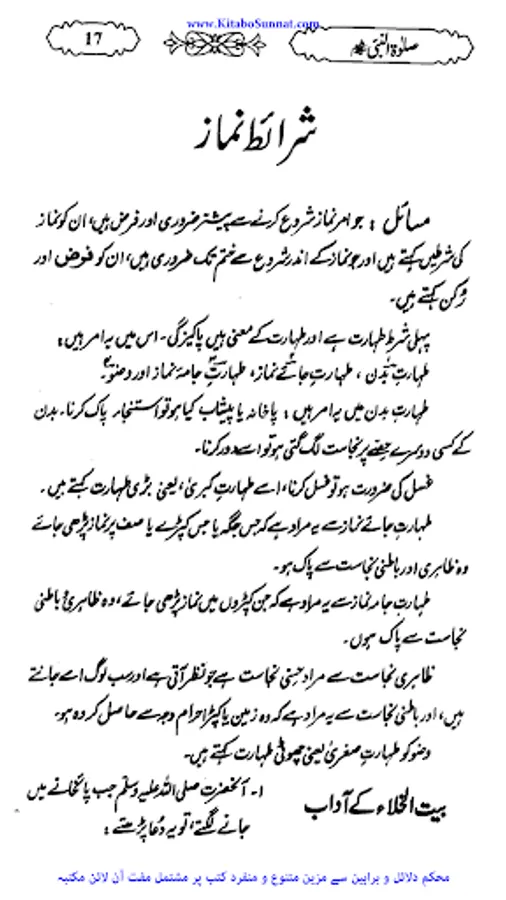 www.KitaboSunnat.com
صلوٰۃ النبی ﷺ
17
شرائط نماز
مسائل : جو امر نماز شروع کرنے سے پیشتر ضروری اور فرض ہیں، ان کو نماز
کی شرطیں کہتے ہیں اور جو نماز کے اندر شروع سے ختم تک ضروری ہیں، ان کو فرض اور
رُکن کہتے ہیں۔
پہلی شرط طہارت ہے اور طہارت کے معنی ہیں پاکیزگی۔ اس میں یہ امر ہیں:
طہارتِ بدن ، طہارتِ جائے نماز، طہارتِ جامۂ نماز اور وضو۔
طہارتِ بدن میں یہ امر ہیں : پاخانہ یا پیشاب کیا ہو تو استنجار پاک کرنا۔ بدن
کے کسی دوسرے حصّے پر نجاست لگ گئی ہو تو اسے دور کرنا۔
غسل کی ضرورت ہو تو غسل کرنا، اسے طہارتِ کبریٰ، یعنی بڑی طہارت کہتے ہیں۔
طہارتِ جائے نماز سے یہ مراد ہے کہ جس جگہ یا جس کپڑے یا صف پر نماز پڑھی جائے
وہ ظاہری اور باطنی نجاست سے پاک ہو۔
طہارتِ جامہ نماز سے یہ مراد ہے کہ جن کپڑوں میں نماز پڑھی جائے، وہ ظاہری و باطنی
نجاست سے پاک ہوں۔
ظاہری نجاست سے مراد حِسّی نجاست ہے جو نظر آتی ہے اور سب لوگ اسے جانتے
ہیں، اور باطنی نجاست سے یہ مراد ہے کہ وہ زمین یا کپڑا حرام وجہ سے حاصل کردہ ہو۔
وضو کو طہارتِ صغریٰ یعنی چھوٹی طہارت کہتے ہیں۔
بیت الخلاء کے آداب
۱۔ آنحضرت صلی اللہ علیہ وسلم جب پائخانے میں
جانے لگتے، تو یہ دُعا پڑھتے :
محکم دلائل و براہین سے مزین متنوع و منفرد کتب پر مشتمل مفت آن لائن مکتبہ